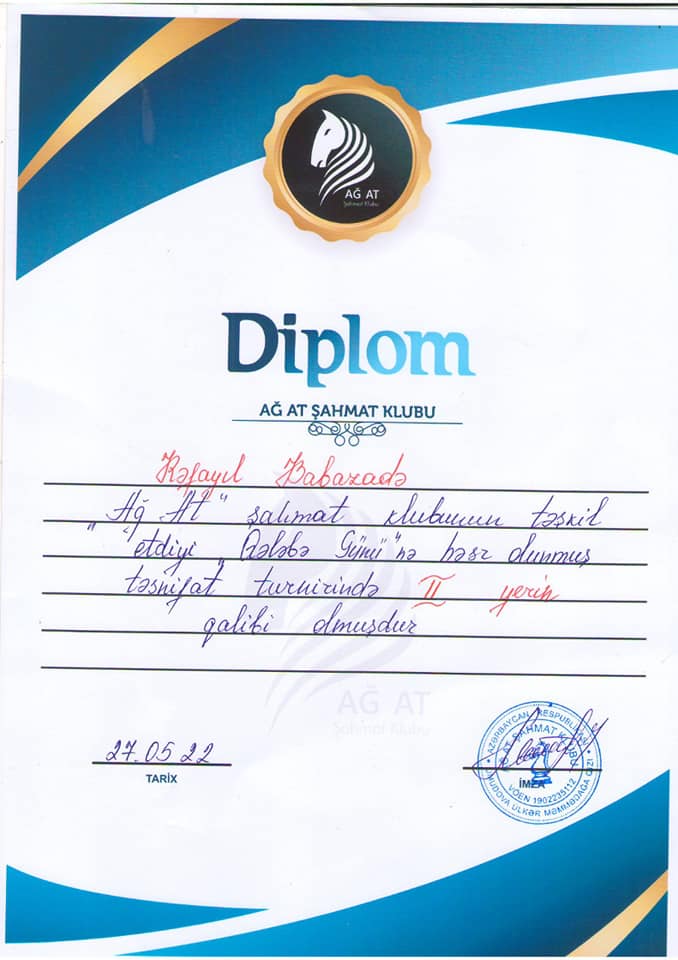 AĞ AT
Şahmat Klubu
Diplom
AĞ AT ŞAHMAT KLUBU
Rəfayıl Babazadə
„Ağ At“ şahmat klubunun təşkil
etdiyi „Qələbə Günü“nə həsr olunmuş
təsnifat turnirində II yerin
qalibi olmuşdur
AĞ AT
Şahmat Klubu
27.05 22
TARİX
İMZA
AZƏRBAYCAN RESPUBLİKASI
AĞ AT ŞAHMAT KLUBU
VÖEN 1902235112
ÜLKƏR MƏMMƏDAĞA QIZI